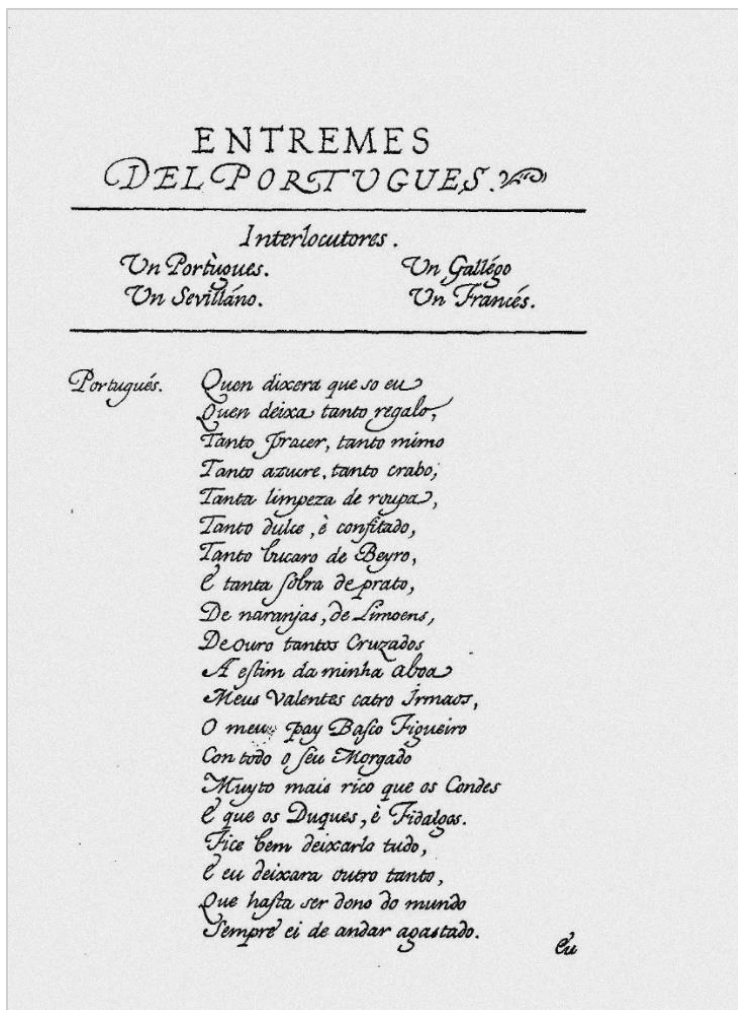 ENTREMES
DEL PORTUGUES.
Interlocutores.
Un Portùgues. Un Gallégo
Un Sevilláno. Un Francés.
Portugués. Quen dixera que so eu
Quen deixa tanto regalo,
Tanto pracer, tanto mimo
Tanto azucre, tanto crabo,
Tanta limpeza de roupa,
Tanto dulce, è confitado,
Tanto bucaro de Beyro,
E tanta sobra de prato,
De naranjas, de Limoens,
De ouro tantos Cruzados
A estim da minha aboa
Meus Valentes catro Irmaos,
O meu pay Basco Figueiro
Con todo o seu Morgado
Muyto mais rico que os Condes
E que os Duques, è Fidalgos.
Fice bem deixarlo tudo,
E eu deixara outro tanto,
Que hasta ser dono do mundo
Sempre ei de andar agastado.
Eu